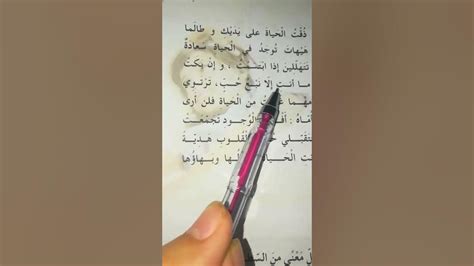 ذُقْتُ الْحياةَ على يَدَيْكِ و طالَما
هَيْهاتَ تُوجَدُ في الْحياةِ سَعادةٌ
تَتَهَلَّلينَ إِذا ابْتَسَمْتُ ، و إِنْ بكَيْتُ
ما أَنتِ إِلَّا نَبْعُ حُبٍّ ، تَرْتَوِي
مَهْما من الْحياةِ فلن أَرى
أُمّاهُ : الْوُجودِ تجمَّعَتْ
الْقُلوبِ هَديَّةً
وبَهاؤُها
مَعْنًى مِنَ